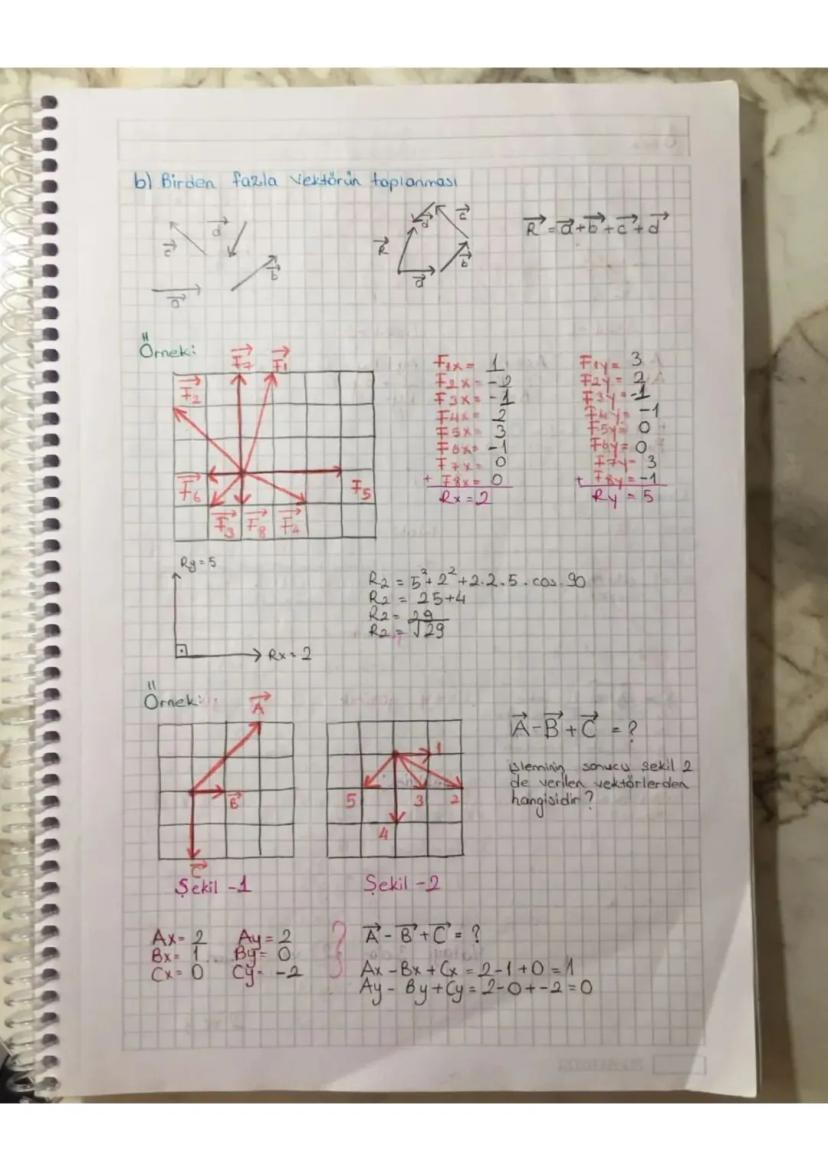 b) Birden fazla vektörün toplanması
c d b a
R d c b a
R = a+b+c+d
Örnek:
F7 F1
F2
F6 F5
F3 F8 F4
F1x = 1
F2x = -2
F3x = -1
F4x = 2
F5x = 3
F6x = -1
F7x = 0
+ F8x = 0
Rx = 2
F1y = 3
F2y = 2
F3y = -1
F4y = -1
F5y = 0
F6y = 0
F7y = 3
+ F8y = -1
Ry = 5
Ry = 5
Rx = 2
R2 = 5²+2²+2.2.5.cos 90
R2 = 25+4
R2 = 29
R2 = √29
Örnek:
A
B
C
Şekil -1
1
5 3 2
4
Şekil -2
A-B+C = ?
işleminin sonucu şekil 2
de verilen vektörlerden
hangisidir?
Ax= 2 Ay= 2
Bx= 1 By= 0
Cx= 0 Cy= -2
A-B+C = ?
Ax-Bx+Cx = 2-1+0 = 1
Ay-By+Cy = 2-0+-2 = 0